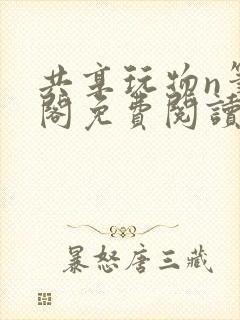 共享玩物n筆
閣免費閱讀
暴怒唐三藏